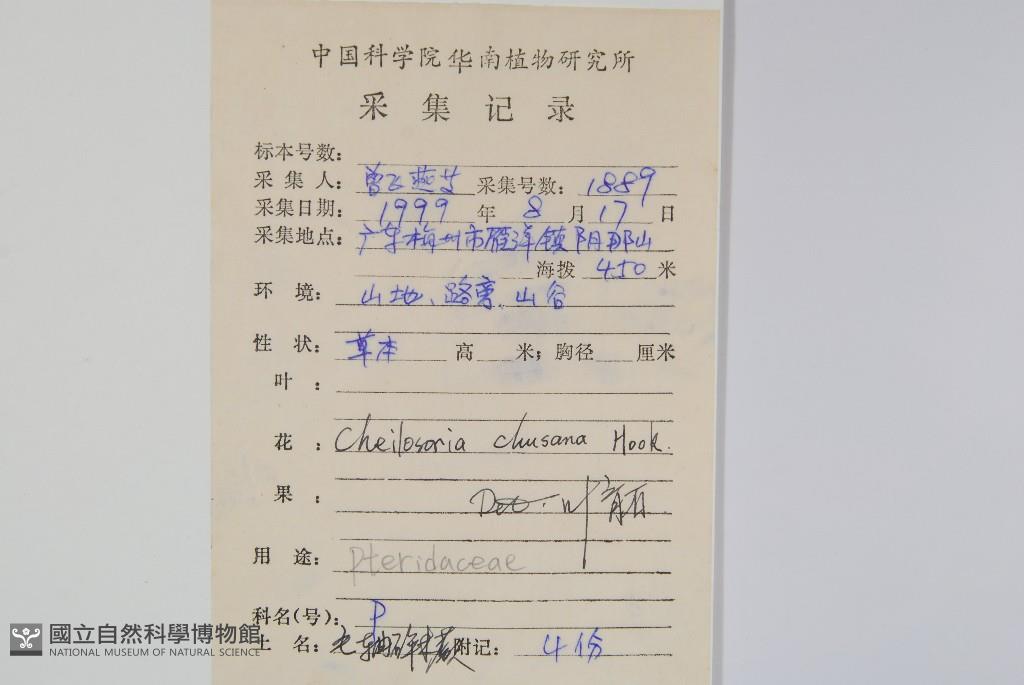 中国科学院华南植物研究所
采集记录
标本号数：
采集人：曾飞燕等 采集号数：1889
采集日期：1999 年 8 月 17 日
采集地点：广东梅州市雁洋镇阴那山
海拨 450 米
环境：山地、路旁、山谷
性状：草本 高 米；胸径 厘米
叶：
花：Cheilosoria chusana Hook.
果：
Det. 叶育石
用途：Pteridaceae
科名(号)：P
土名： 附记：4份
國立自然科學博物館
NATIONAL MUSEUM OF NATURAL SCIENCE